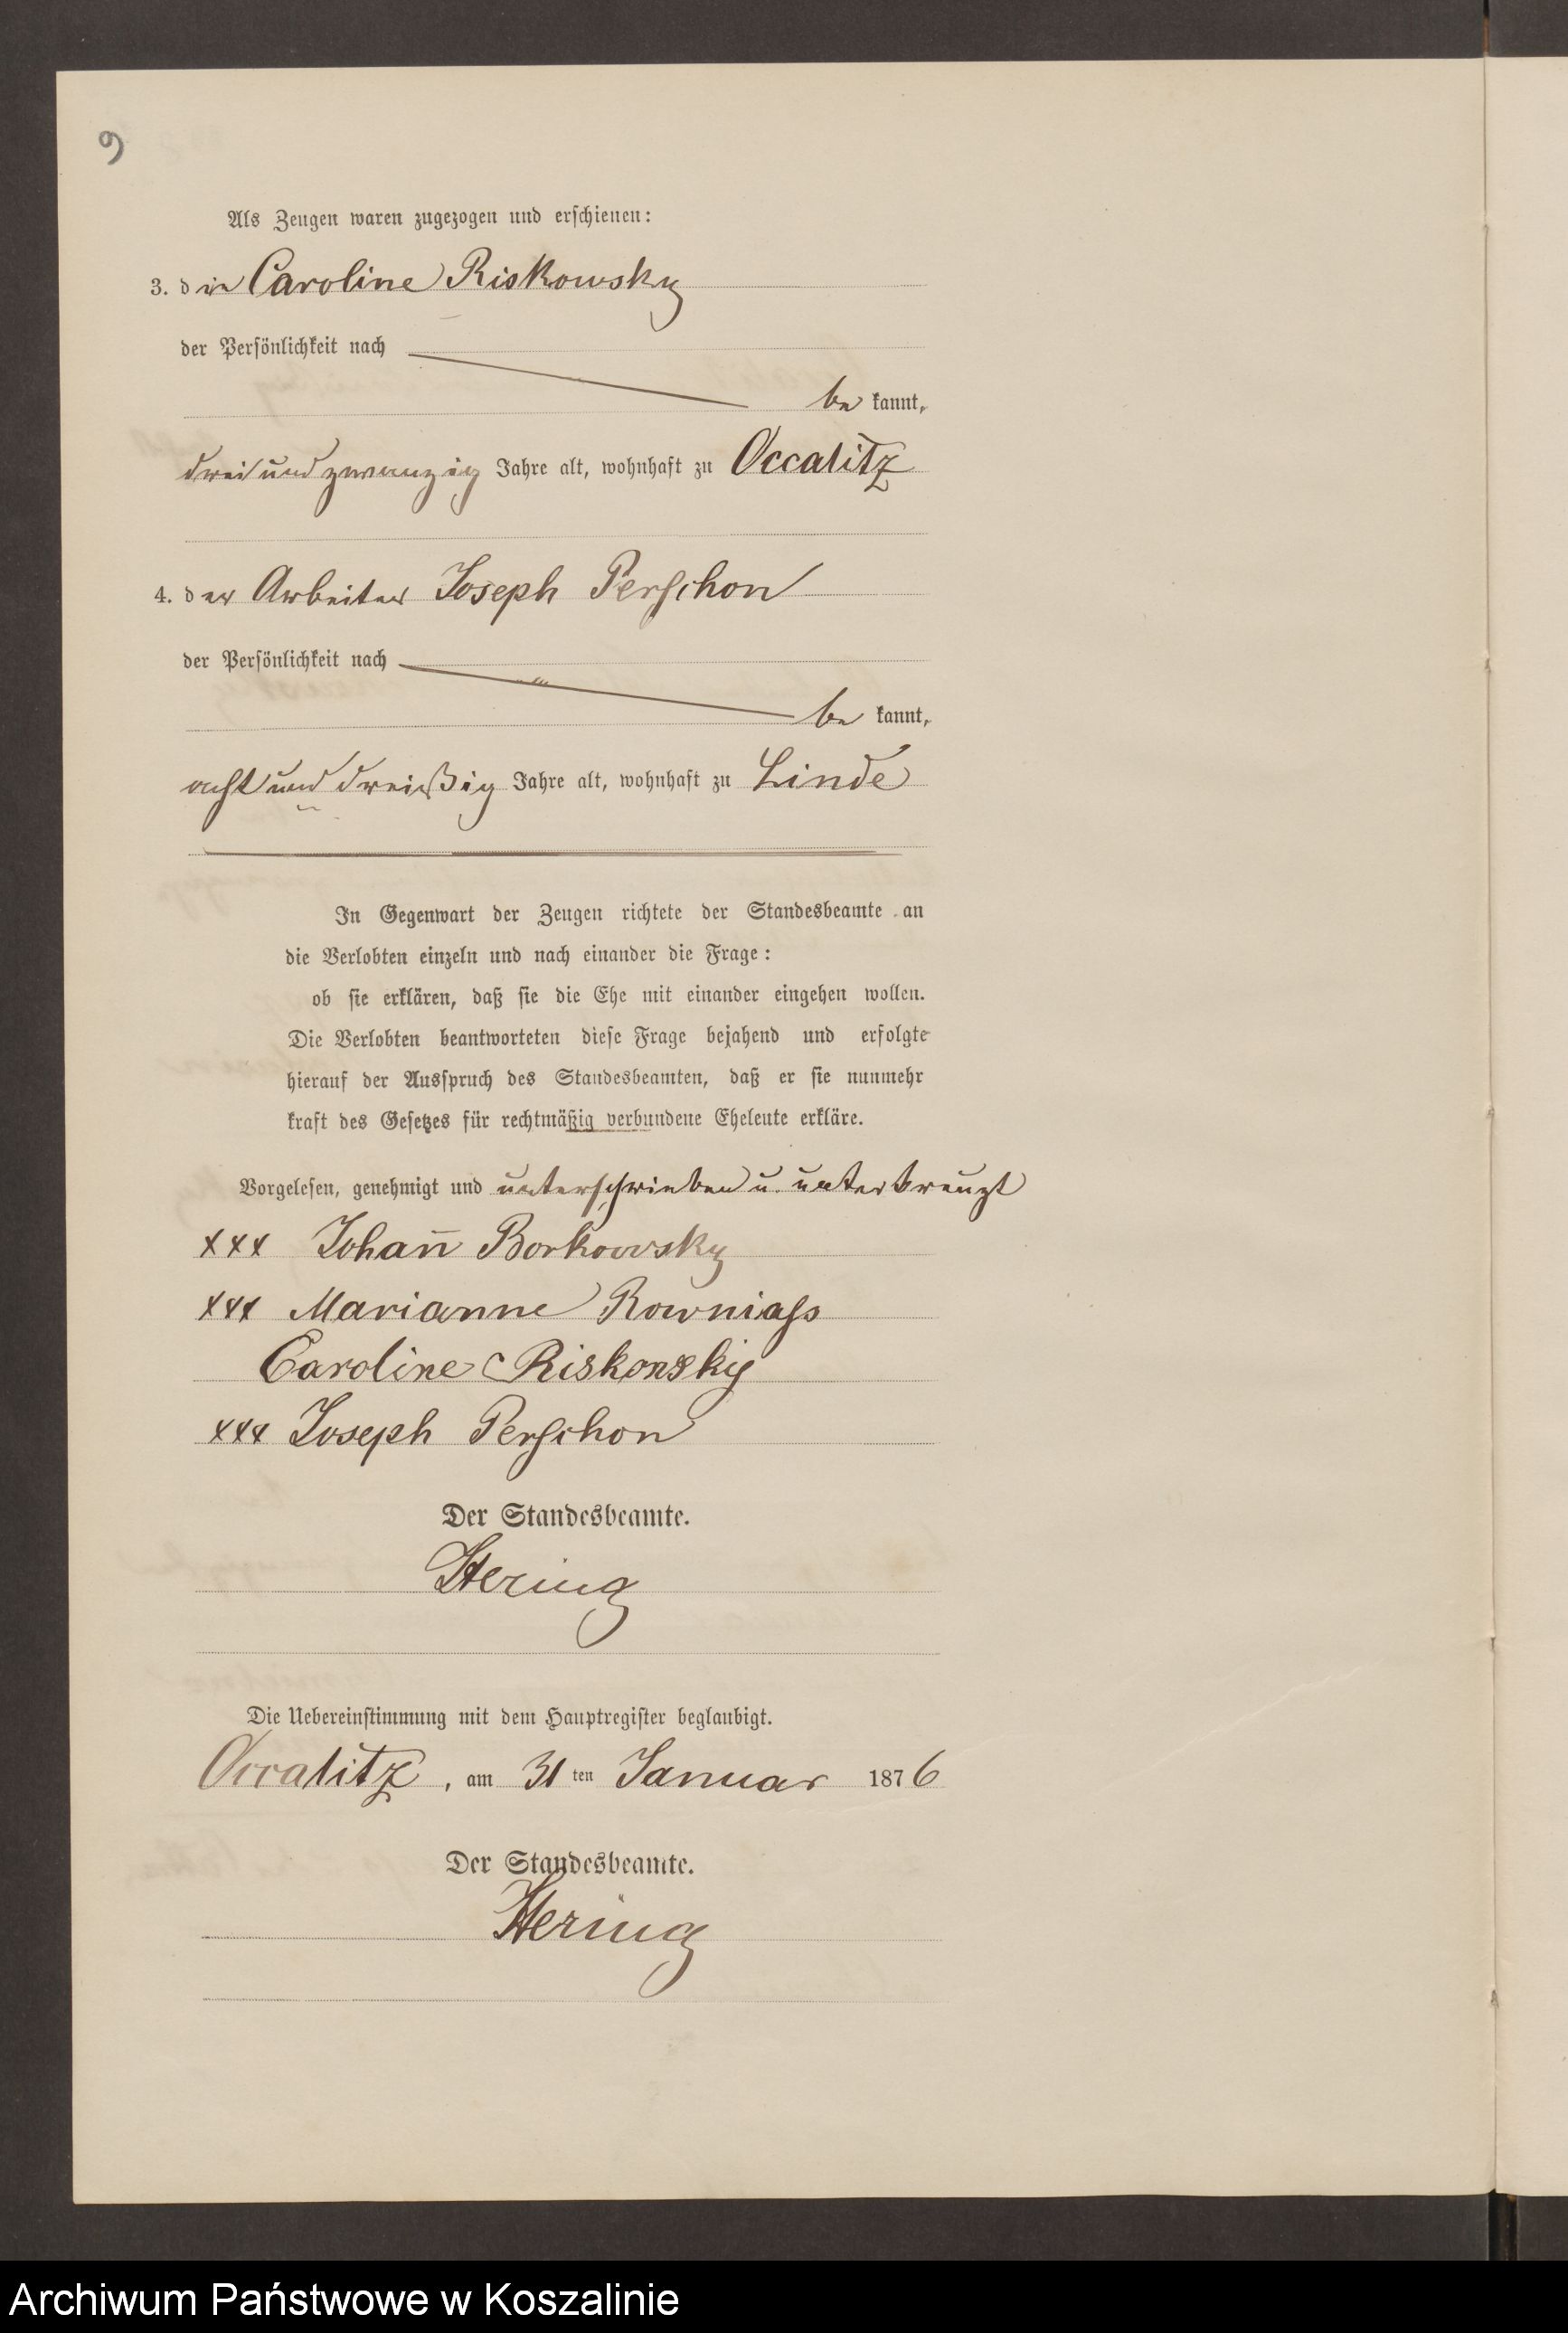 9
Als Zeugen waren zugezogen und erschienen:
3. die Caroline Riskowsky
der Persönlichkeit nach
be kannt,
drei und zwanzig Jahre alt, wohnhaft zu Occalitz
4. der Arbeiter Joseph Perschon
der Persönlichkeit nach
be kannt,
acht und dreißig Jahre alt, wohnhaft zu Linde
In Gegenwart der Zeugen richtete der Standesbeamte an
die Verlobten einzeln und nach einander die Frage:
ob sie erklären, daß sie die Ehe mit einander eingehen wollen.
Die Verlobten beantworteten diese Frage bejahend und erfolgte
hierauf der Ausspruch des Standesbeamten, daß er sie nunmehr
kraft des Gesetzes für rechtmäßig verbundene Eheleute erkläre.
Vorgelesen, genehmigt und unterschrieben u. unterkreuzt
xxx Johan̄ Borkowsky
xxx Marianne Rowniaſs
Caroline Riskowsky
xxx Joseph Perschon
Der Standesbeamte.
Hering
Die Uebereinstimmung mit dem Hauptregister beglaubigt.
Occalitz, am 31 ten Januar 1876
Der Standesbeamte.
Hering
Archiwum Państwowe w Koszalinie